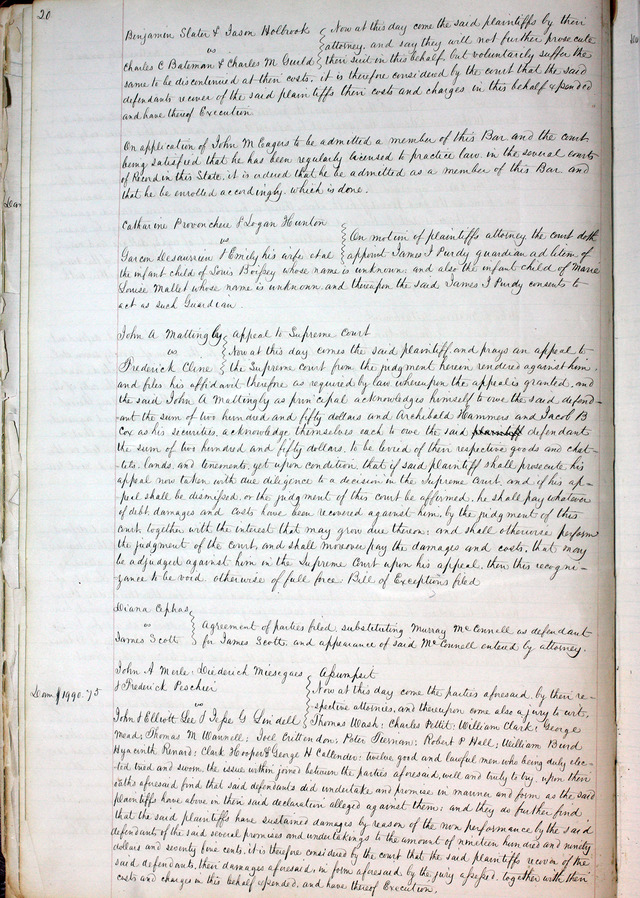 20
Benjamin Slater & Jason Holbrook Now at this day come the said plaintiffs by their
vs attorney, and say they will not further prosecute
Charles C Bateman & Charles M Guild their suit in this behalf but voluntarily suffer the
same to be discontinued at their costs, it is therefore considered by the court that the said
defendants recover of the said plaintiffs their costs and charges in this behalf expended
and have thereof Execution
On application of John M Eagers to be admitted a member of this Bar and the court
being satisfied that he has been regularly licensed to practice law in the several courts
of Record in this State, it is ordered that he be admitted as a member of this Bar and
that he be enrolled accordingly which is done.
Catharine Provenchere & Logan Hunton
vs On motion of plaintiffs attorney the court doth
Garcon Desaurrien & Emily his wife et al appoint James F Purdy guardian ad litem of
the infant child of Louis Boissey whose name is unknown, and also the infant child of Marie
Louise Mallet whose name is unknown and thereupon the said James F Purdy consents to
act as such Guardian
John A Mattingly Appeal to Supreme Court
vs Now at this day comes the said plaintiff, and prays an appeal to
Frederick Cline the Supreme court from the judgment herein rendered against him
and files his affidavit therefore as required by law whereupon the appeal is granted, and
the said John A Mattingly as principal acknowledges himself to owe the said defend-
ant the sum of two hundred and fifty dollars and Archibald Hammers and Jacob B
Cox as his securities, acknowledge themselves each to owe the said plaintiff defendant
the sum of two hundred and fifty dollars, to be levied of their respective goods and chat-
tels, lands, and tenements, yet upon condition, that if said plaintiff shall prosecute his
appeal now taken with due diligence to a decision in the Supreme Court, and if his ap-
peal shall be dismissed, or the judgment of this court be affirmed, he shall pay whatever
of debt, damages and costs have been recovered against him, by the judgment of this
court together with the interest that may grow due thereon; and shall otherwise perform
the judgment of the court, and shall moreover pay the damages and costs, that may
be adjudged against him in the Supreme Court upon his appeal, then this recogni-
zance to be void, otherwise of full force Bill of Exceptions filed
Diana Cephas
vs Agreement of parties filed, substituting Murray McConnell as defendant
James Scott for James Scott, and appearance of said McConnell entered by attorney.
John A Merle, Diederich Miesegaes Assumpsit
& Frederick Peschier Now at this day come the parties aforesaid, by their re-
Dam $1990.75
vs spective attornies, and thereupon come also a jury to wit,
John & Elliott Lee & Jesse G Lindell Thomas Wash; Charles Pettit; William Clark; George
Mead; Thomas M Wannell; Joel Crittendon; Peter Tiernan; Robert P Hall; William Burd
Hyacinth Renard; Clark Hooper & George H Callender; twelve good and lawful men who being duly elec-
ted tried and sworn, the issue within joined between the parties aforesaid, well and truly to try, upon their
oaths aforesaid find that said defendants did undertake and promise in manner and form as the said
plaintiffs have above in their said declaration alleged against them; and they do further find
that the said plaintiffs have sustained damages by reason of the non performance by the said
defendant of the said several promises and undertakings to the amount of nineteen hundred and ninety
dollars and seventy five cents, it is therefore considered by the court that the said plaintiffs recover of the
said defendants, their damages aforesaid, in form aforesaid by the jury assessed, together with their
costs and charges in this behalf expended, and have thereof Execution.